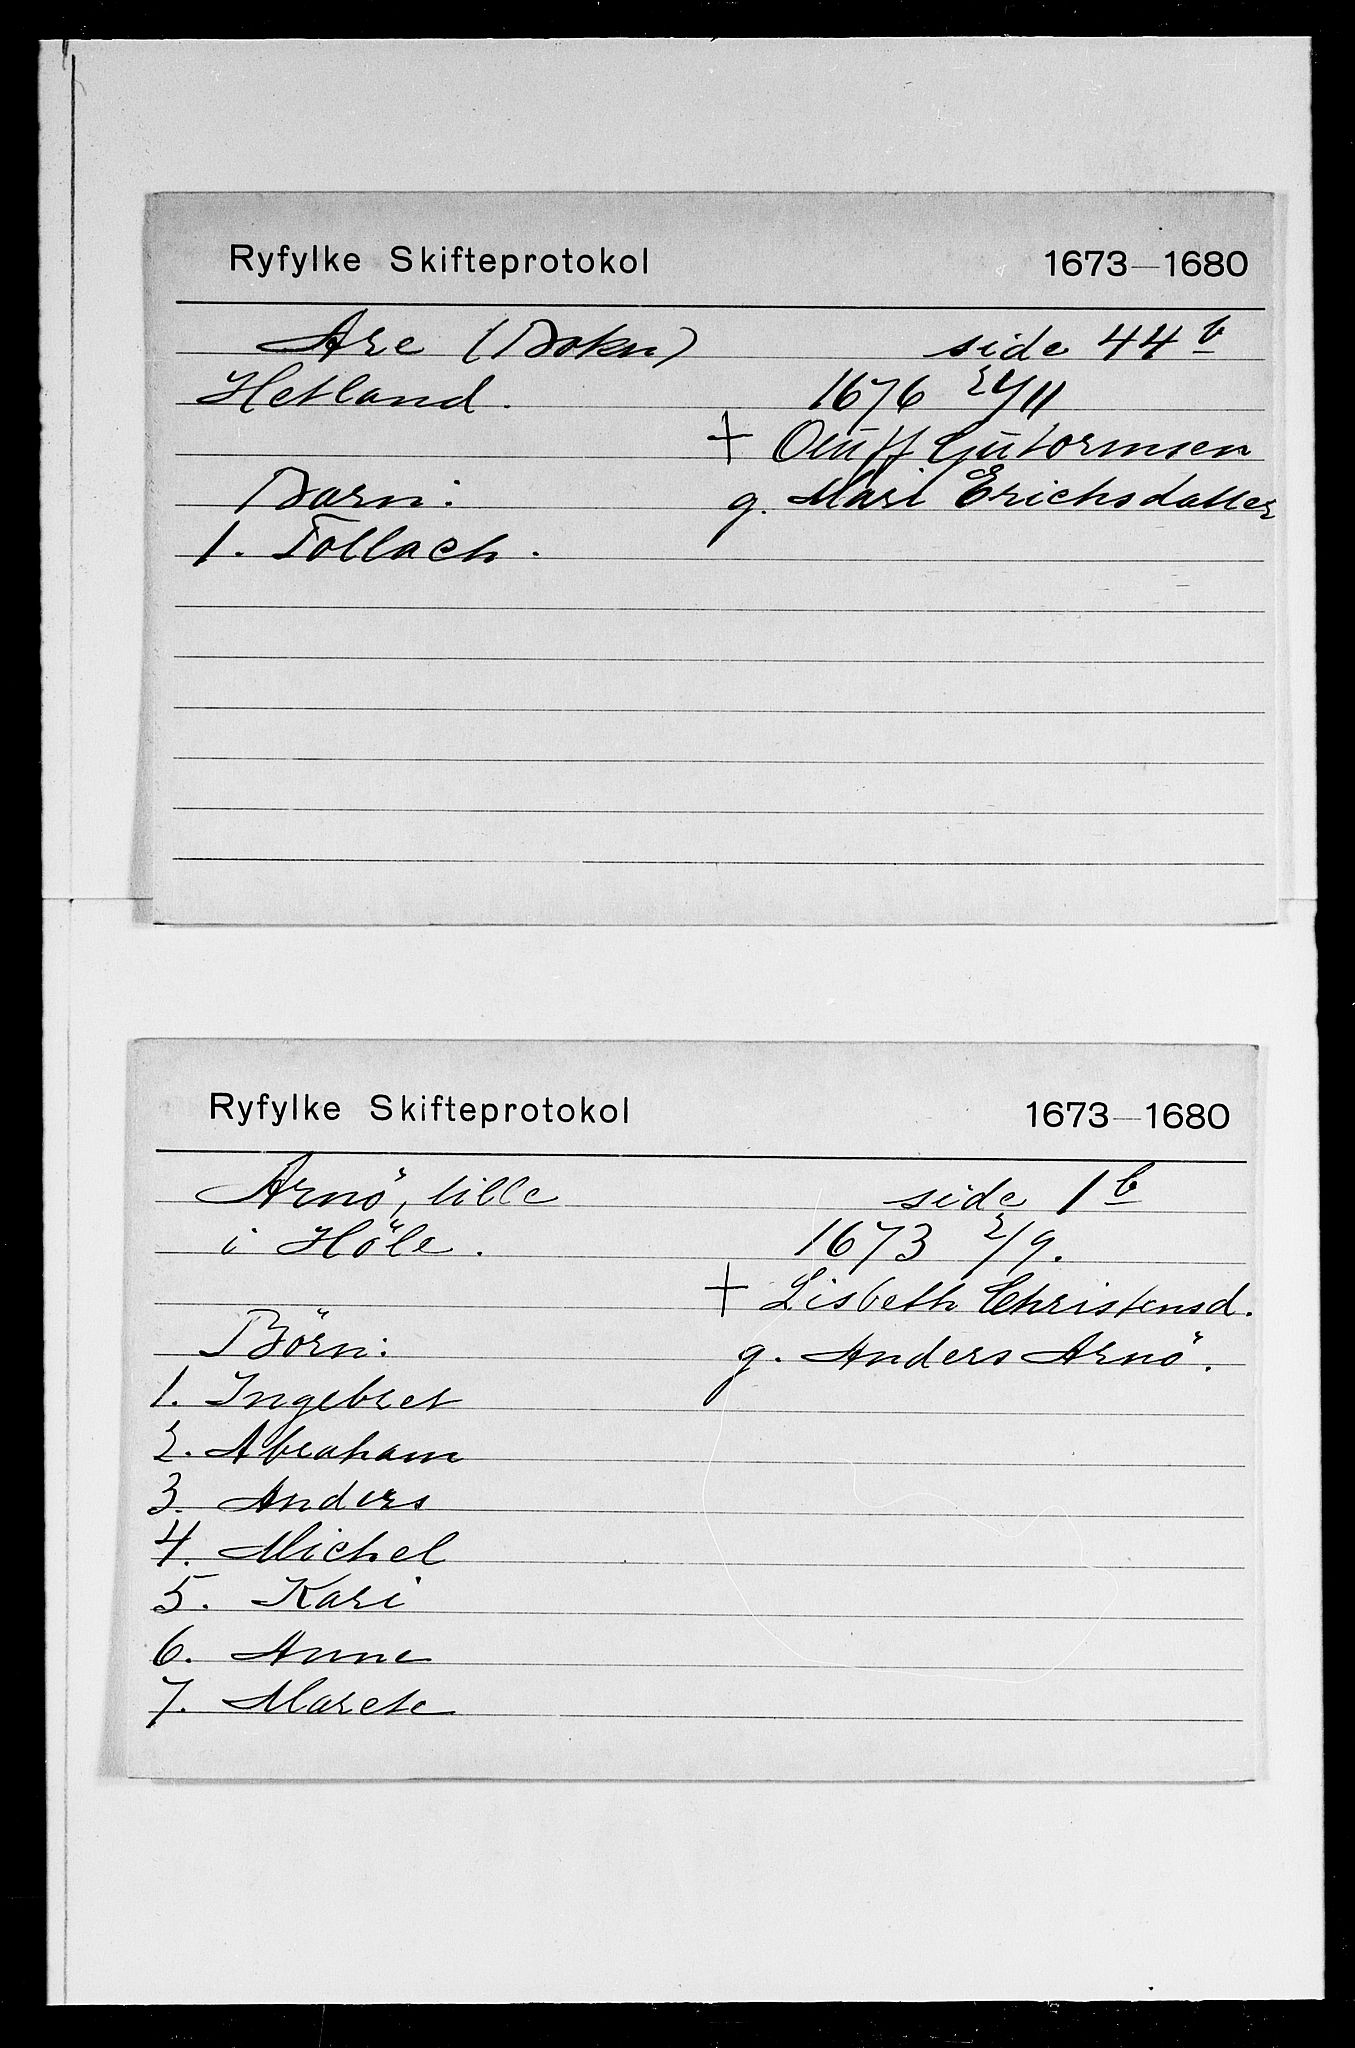 Ryfylke Skifteprotokol 1673—1680
Are (Bokn) side 44 b
Hetland. 1676 2/11
+ Oluff Gutormsen
Barn: g. Mari Erichsdatter
1. Tollach.
Ryfylke Skifteprotokol 1673—1680
Arnö, lille side 1 b
i Höle. 1673 2/9.
+ Lisbeth Christensd.
Börn: g. Anders Arnö.
1. Ingebret
2. Abraham
3. Anders
4. Michel
5. Kari
6. Anne
7. Marete